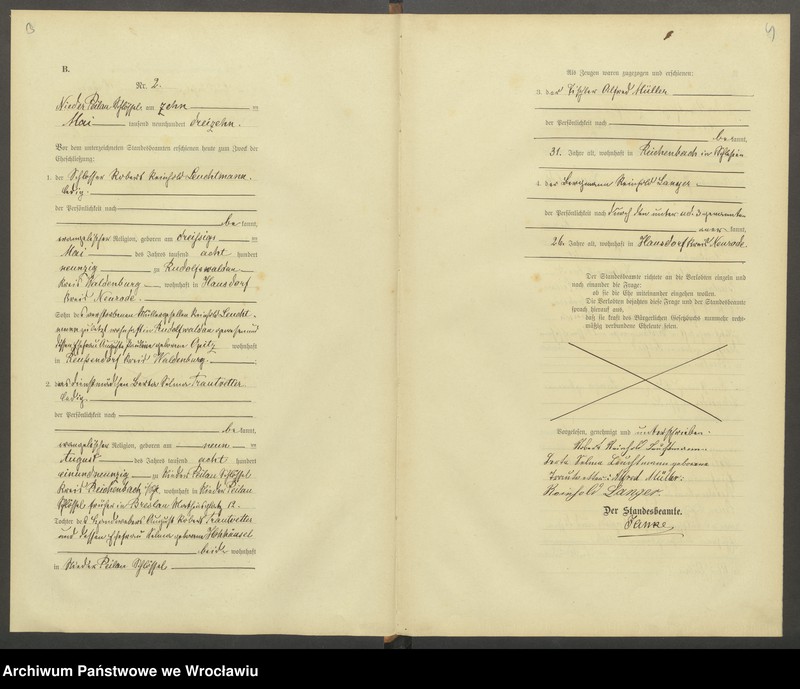 B.
Nr. 2.
Nieder Peilau Schlössel am zehn ten
Mai tausend neunhundert dreizehn.
Vor dem unterzeichneten Standesbeamten erschienen heute zum Zweck der
Eheschließung:
1. der Schlosser Robert Reinhold Leuchtmann,
ledig.
der Persönlichkeit nach
be kannt,
evangelischer Religion, geboren am dreißigs ten
Mai des Jahres tausend acht hundert
neunzig zu Rudolfswaldau
Kreis Waldenburg wohnhaft in Hausdorf
Kreis Neurode.
Sohn des verstorbenen Müllergesellen Reinhold Leucht-
mann zuletzt wohnhaft in Rudolfswaldau gewesen und
dessen Ehefrau Auguste Pauline geborene Opitz wohnhaft
in Reußendorf Kreis Waldenburg.
2. das Dienstmädchen Berta Selma Trautvetter
ledig.
der Persönlichkeit nach
be kannt,
evangelischer Religion, geboren am neun ten
August des Jahres tausend acht hundert
einundneunzig zu Nieder Peilau Schlössel
Kreis Reichenbach wohnhaft in Nieder Peilau
Schlössel früher in Breslau 12.
Tochter des Handwebers August Robert Trautvetter
und dessen Ehefrau Selma geborene
beide wohnhaft
in Nieder Peilau Schlössel
4
Als Zeugen waren zugezogen und erschienen:
3. der Tischler Alfred Müller
der Persönlichkeit nach
be kannt,
31. Jahre alt, wohnhaft in Reichenbach in Schlesien
4. der Bergmann Reinhold Langer
der Persönlichkeit nach durch den unter No. 3 genannten
aner kannt,
26. Jahre alt, wohnhaft in Hausdorf Kreis Neurode.
Der Standesbeamte richtete an die Verlobten einzeln und
nach einander die Frage:
ob sie die Ehe miteinander eingehen wollen.
Die Verlobten bejahten diese Frage und der Standesbeamte
sprach hierauf aus,
daß sie kraft des Bürgerlichen Gesetzbuchs nunmehr recht-
mäßig verbundene Eheleute seien.
Vorgelesen, genehmigt und unterschrieben.
Robert Reinhold Leuchtmann.
Berta Selma Leuchtmann geborene
Trautvetter. Alfred Müller.
Reinhold Langer.
Der Standesbeamte.
Janke
Archiwum Państwowe we Wrocławiu